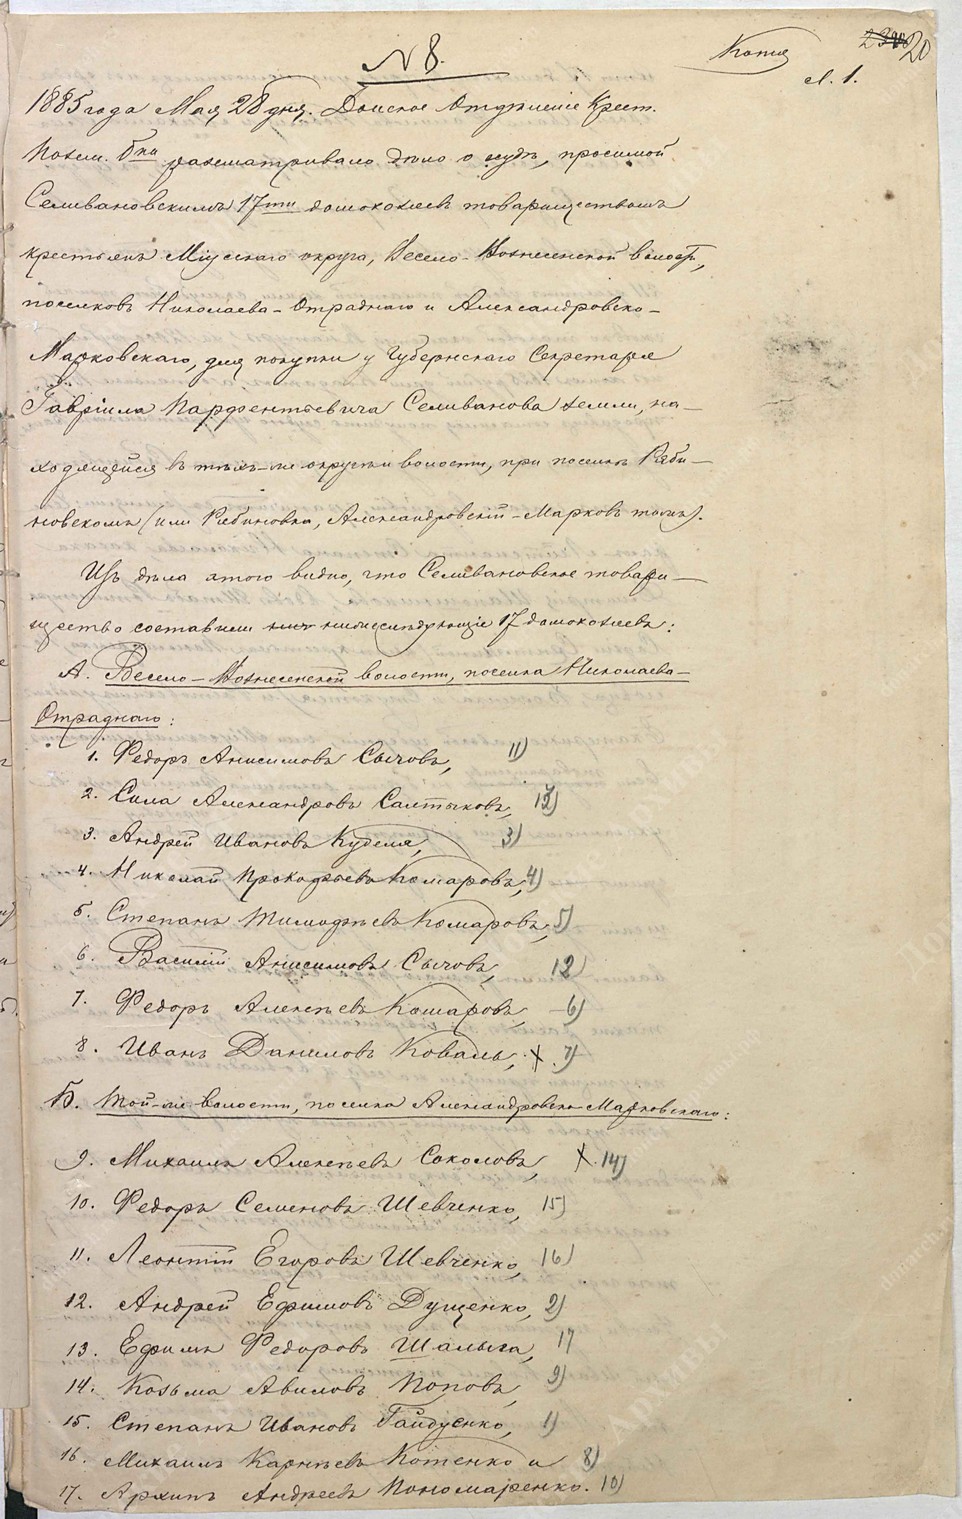 Копія
20
№ 8.
Л. 1.
1885 года Мая 28 дня. Донское Отдѣленіе Крест.
Позем. Бка разсматривало дѣло о ссудѣ, просимой
Селивановскимъ 17ти домохозяевъ товариществомъ
крестьянъ Міусскаго округа, Весело-Вознесенской волости,
поселковъ Николаева-Отраднаго и Александровско-
Марковскаго, для покупки у Губернскаго Секретаря
Гавріила Парфентьевича Селиванова земли, на-
ходящейся въ тѣхъ-же округѣ и волости, при поселкѣ Ряби-
новскомъ (или Рябиновка, Александровскій-Марковъ тожъ).
Изъ дѣла этого видно, что Селивановское товари-
щество составили нижеслѣдующіе 17 домохозяевъ:
А. Весело-Вознесенской волости, поселка Николаева-
Отраднаго:
1. Федоръ Анисимовъ Сычовъ, 11)
2. Сила Александровъ Салтыковъ, 13)
3. Андрей Ивановъ Куделя, 3)
4. Николай Прокофьевъ Комаровъ, 4)
5. Степанъ Тимофѣевъ Комаровъ, 5)
6. Василій Анисимовъ Сычовъ, 12
7. Федоръ Алексѣевъ Комаровъ, 6)
8. Иванъ Даниловъ Коваль, х. 7)
Б. Той-же волости, поселка Александровско-Марковскаго:
9. Михаилъ Алексѣевъ Соколовъ, х. 14)
10. Федоръ Семеновъ Шевченко, 15)
11. Леонтій Егоровъ Шевченко, 16)
12. Андрей Ефимовъ Дущенко, 2)
13. Ефимъ Федоровъ Шалыга, 17
14. Козьма Авиловъ Поповъ, 9)
15. Степанъ Ивановъ Гайдуенко, 1)
16. Михаилъ Карнѣевъ Котенко и 8)
17. Архипъ Андреевъ Пономаренко. 10)